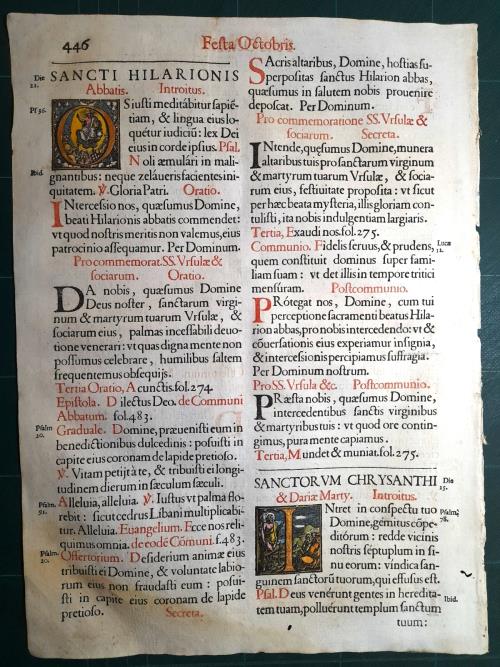 446
Festa Octobris.
Die 21.
SANCTI HILARIONIS
Abbatis. Introitus.
Ps 36.
OS iusti meditābitur sapiē-
tiam, & lingua eius lo-
quétur iudiciū: lex Dei
eius in corde ipsius. Psal.
Noli æmulári in mali-
Ibid.
gnantibus: neque zeláueris facientes ini-
quitatem. ℣. Gloria Patri. Oratio.
INtercessio nos, quæsumus Domine,
beati Hilarionis abbatis commendet:
vt quod nostris meritis non valemus, eius
patrocinio assequamur. Per Dominum.
Pro commemorat. SS. Vrsulæ &
sociarum. Oratio.
DA nobis, quæsumus Domine
Deus noster, sanctarum virgi-
num & martyrum tuarum Vrsulæ, &
sociarum eius, palmas incessabili deuo-
tione venerari: vt quas digna mente non
possumus celebrare, humilibus saltem
frequentemus obsequijs.
Tertia Oratio, A cunctis. fol. 274.
Epistola. Dilectus Deo. de Communi
Abbatum. fol. 483.
Psalm 20.
Graduale. Domine, præuenisti eum in
benedictionibus dulcedinis: posuisti in
capite eius coronam de lapide pretioso.
℣. Vitam petijt à te, & tribuisti ei longi-
tudinem dierum in sæculum sæculi.
Psalm. 91.
Alleluia, alleluia. ℣. Iustus vt palma flo-
rebit: sicut cedrus Libani multiplicabi-
tur. Alleluia. Euangelium. Ecce nos reli-
quimus omnia. de eodē Cómuni. f. 483.
Psalm. 20.
Offertorium. Desiderium animæ eius
tribuisti ei Domine, & voluntate labio-
rum eius non fraudasti eum: posui-
sti in capite eius coronam de lapide
pretioso. Secreta.
SAcris altaribus, Domine, hostias su-
perpositas sanctus Hilarion abbas,
quæsumus in salutem nobis prouenire
deposcat. Per Dominum.
Pro commemoratione SS. Vrsulæ &
sociarum. Secreta.
INtende, quęsumus Domine, munera
altaribus tuis pro sanctarum virginum
& martyrum tuarum Vrsulæ, & socia-
rum eius, festiuitate proposita: vt sicut
per hæc beata mysteria, illis gloriam con-
tulisti, ita nobis indulgentiam largiaris.
Tertia, Exaudi nos. fol. 275.
Communio. Fidelis seruus, & prudens,
Lucæ 12.
quem constituit dominus super fami-
liam suam: vt det illis in tempore tritici
mensúram. Postcommunio.
PRótegat nos, Domine, cum tui
perceptione sacramenti beatus Hila-
rion abbas, pro nobis intercedendo: vt &
cōuersationis eius experiamur insignia,
& intercessionis percipiamus suffragia.
Per Dominum nostrum.
Pro SS. Vrsula &c. Postcommunio.
PRæsta nobis, quæsumus Domine,
intercedentibus sanctis virginibus
& martyribus tuis: vt quod ore contin-
gimus, pura mente capiamus.
Tertia, Mundet & muniat. fol. 275.
SANCTORVM CHRYSANTHI
Die 25.
& Dariæ Marty. Introitus.
INtret in conspectu tuo
Psalm. 78.
Domine, gémitus cōpe-
ditórum: redde vicinis
nostris séptuplum in si-
nu eorum: víndica san-
guinem sanctorū tuorum, qui effusus est.
Psal. Deus venérunt gentes in heredita-
Ibid.
tem tuam, polluérunt templum sanctum
tuum: